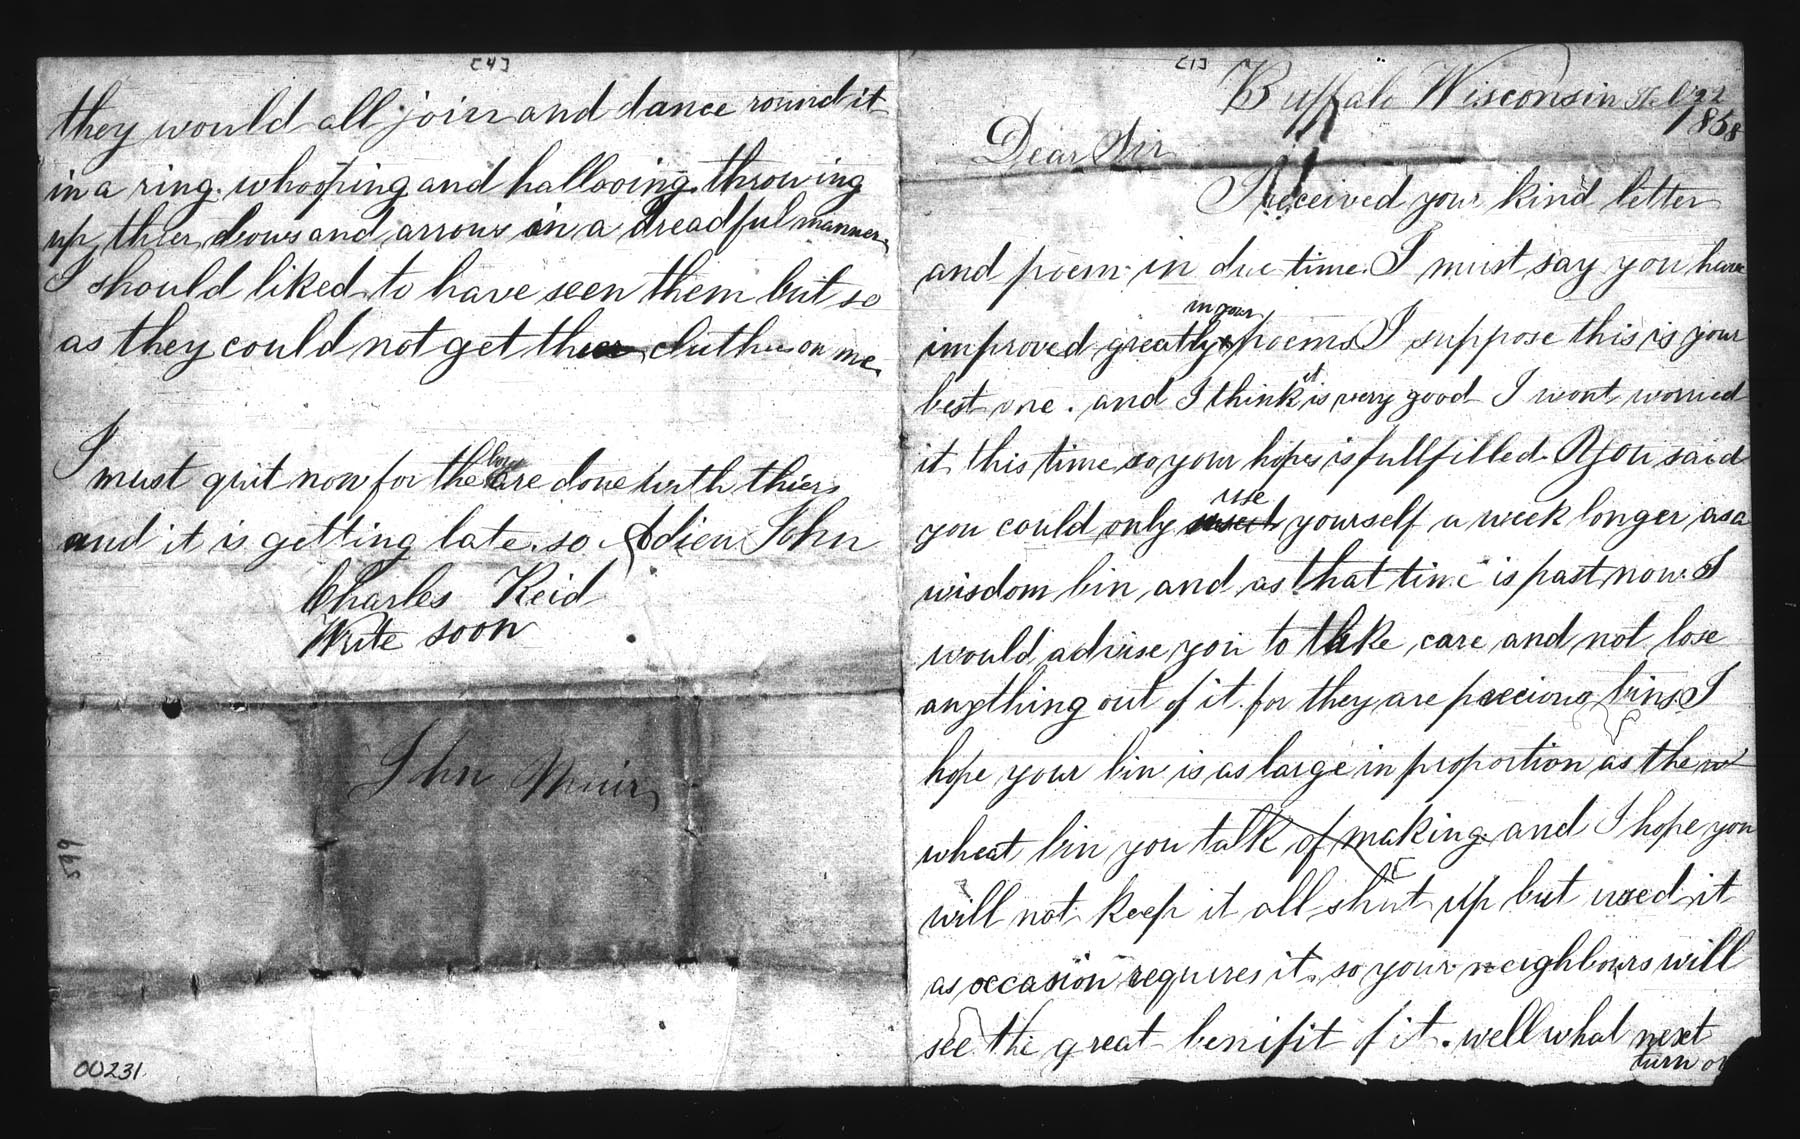 [4]
they would all join and dance round it
in a ring. whooping and hallooing. throwing
up thier bows and arrows in a dreadful manner.
I should liked to have seen them but so
as they could not get thier cluthes on me.
I must quit now for the boys are done with thiers
and it is getting late. so Adieu John
Charles Reid
Write soon
John Muir
599
00231
[1]
Buffalo Wisconsin 22
1858
Dear Sir
I received your kind letter
and poem in due time. I must say you have
in your
improved greatly poems I suppose this is your
best one. and I think it is very good I wont
it this time so your hopes is fullfilled. You said
use
you could only used yourself a week longer as a
wisdom bin and as that time is past now. I
would advise you to take care and not lose
anything out of it. for they are precious bins. I
hope your bin is as large in proportion as the w
wheat bin you talk of making. and I hope you
will not keep it all shut up but used it
as occasion requires it. so your neighbours will
see the great benifit of it. well what next
turn